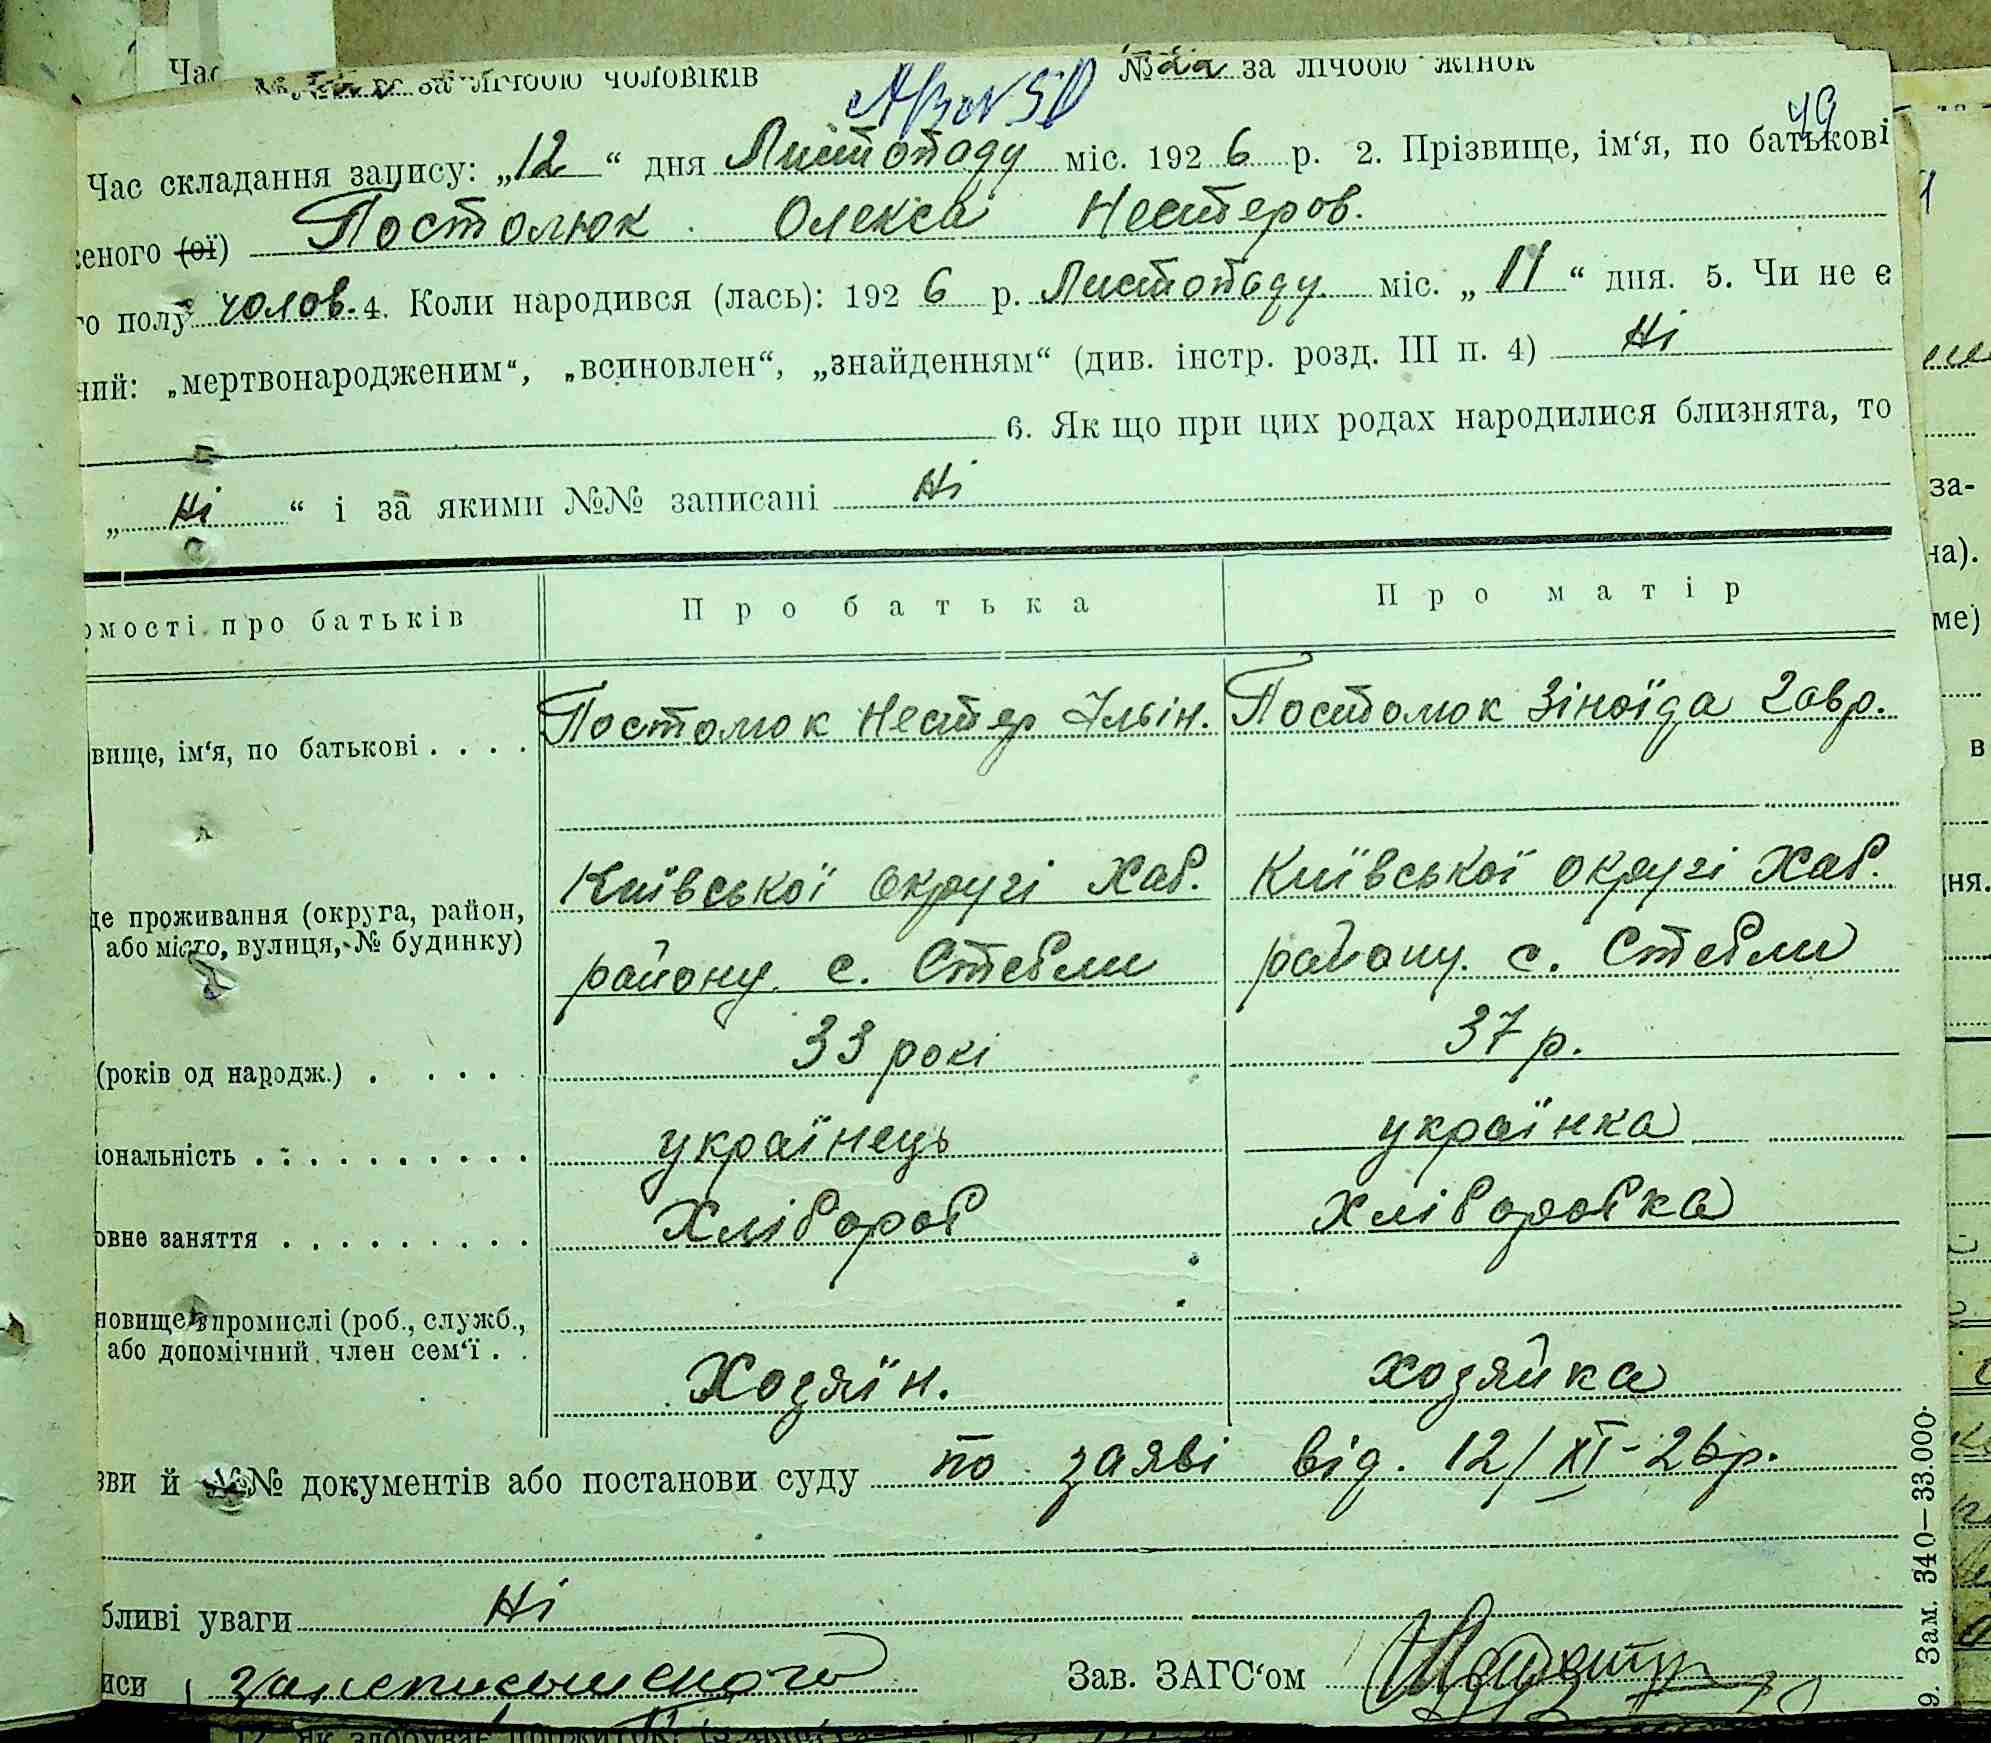 за лічбою чоловіків № за лічбою жінок
49
Час складання запису: „12“ дня Листопаду міс. 1926 р. 2. Прізвище, ім‘я, по батькові
еного (ої) Постолюк Олекса Нестеров.
го полу чолов. 4. Коли народився (лась): 1926 р. Листопаду міс. „11“ дня. 5. Чи не є
ний: „мертвонародженим“, „всиновлен“, „знайденням“ (див. інстр. розд. III п. 4) Ні
6. Як що при цих родах народилися близнята, то
„Ні“ і за якими №№ записані Ні
омості про батьків Про батька Про матір
вище, ім‘я, по батькові . . . . Постолюк Нестер Ільін. Постолюк Зіноїда Гавр.
Київської округі Хаб. Київської округі Хаб.
це проживання (округа, район,
або місто, вулиця, № будинку) району с. Стебли району с. Стебли
(років од народж.) . . . . 33 рокі 37 р.
іональність . . . . . . . . . . українець українка
овне заняття . . . . . . . . . Хлібороб Хліборобка
новище в промислі (роб., служб.,
або допомічний член сем‘ї . . Хозяїн. хозяйка
зви й №№ документів або постанови суду по заяві від. 12/XI-26р.
бливі уваги Ні
иси Зав. ЗАГС‘ом
9. Зам. 340—33.000.
за-
на).
ме)
в
дня.